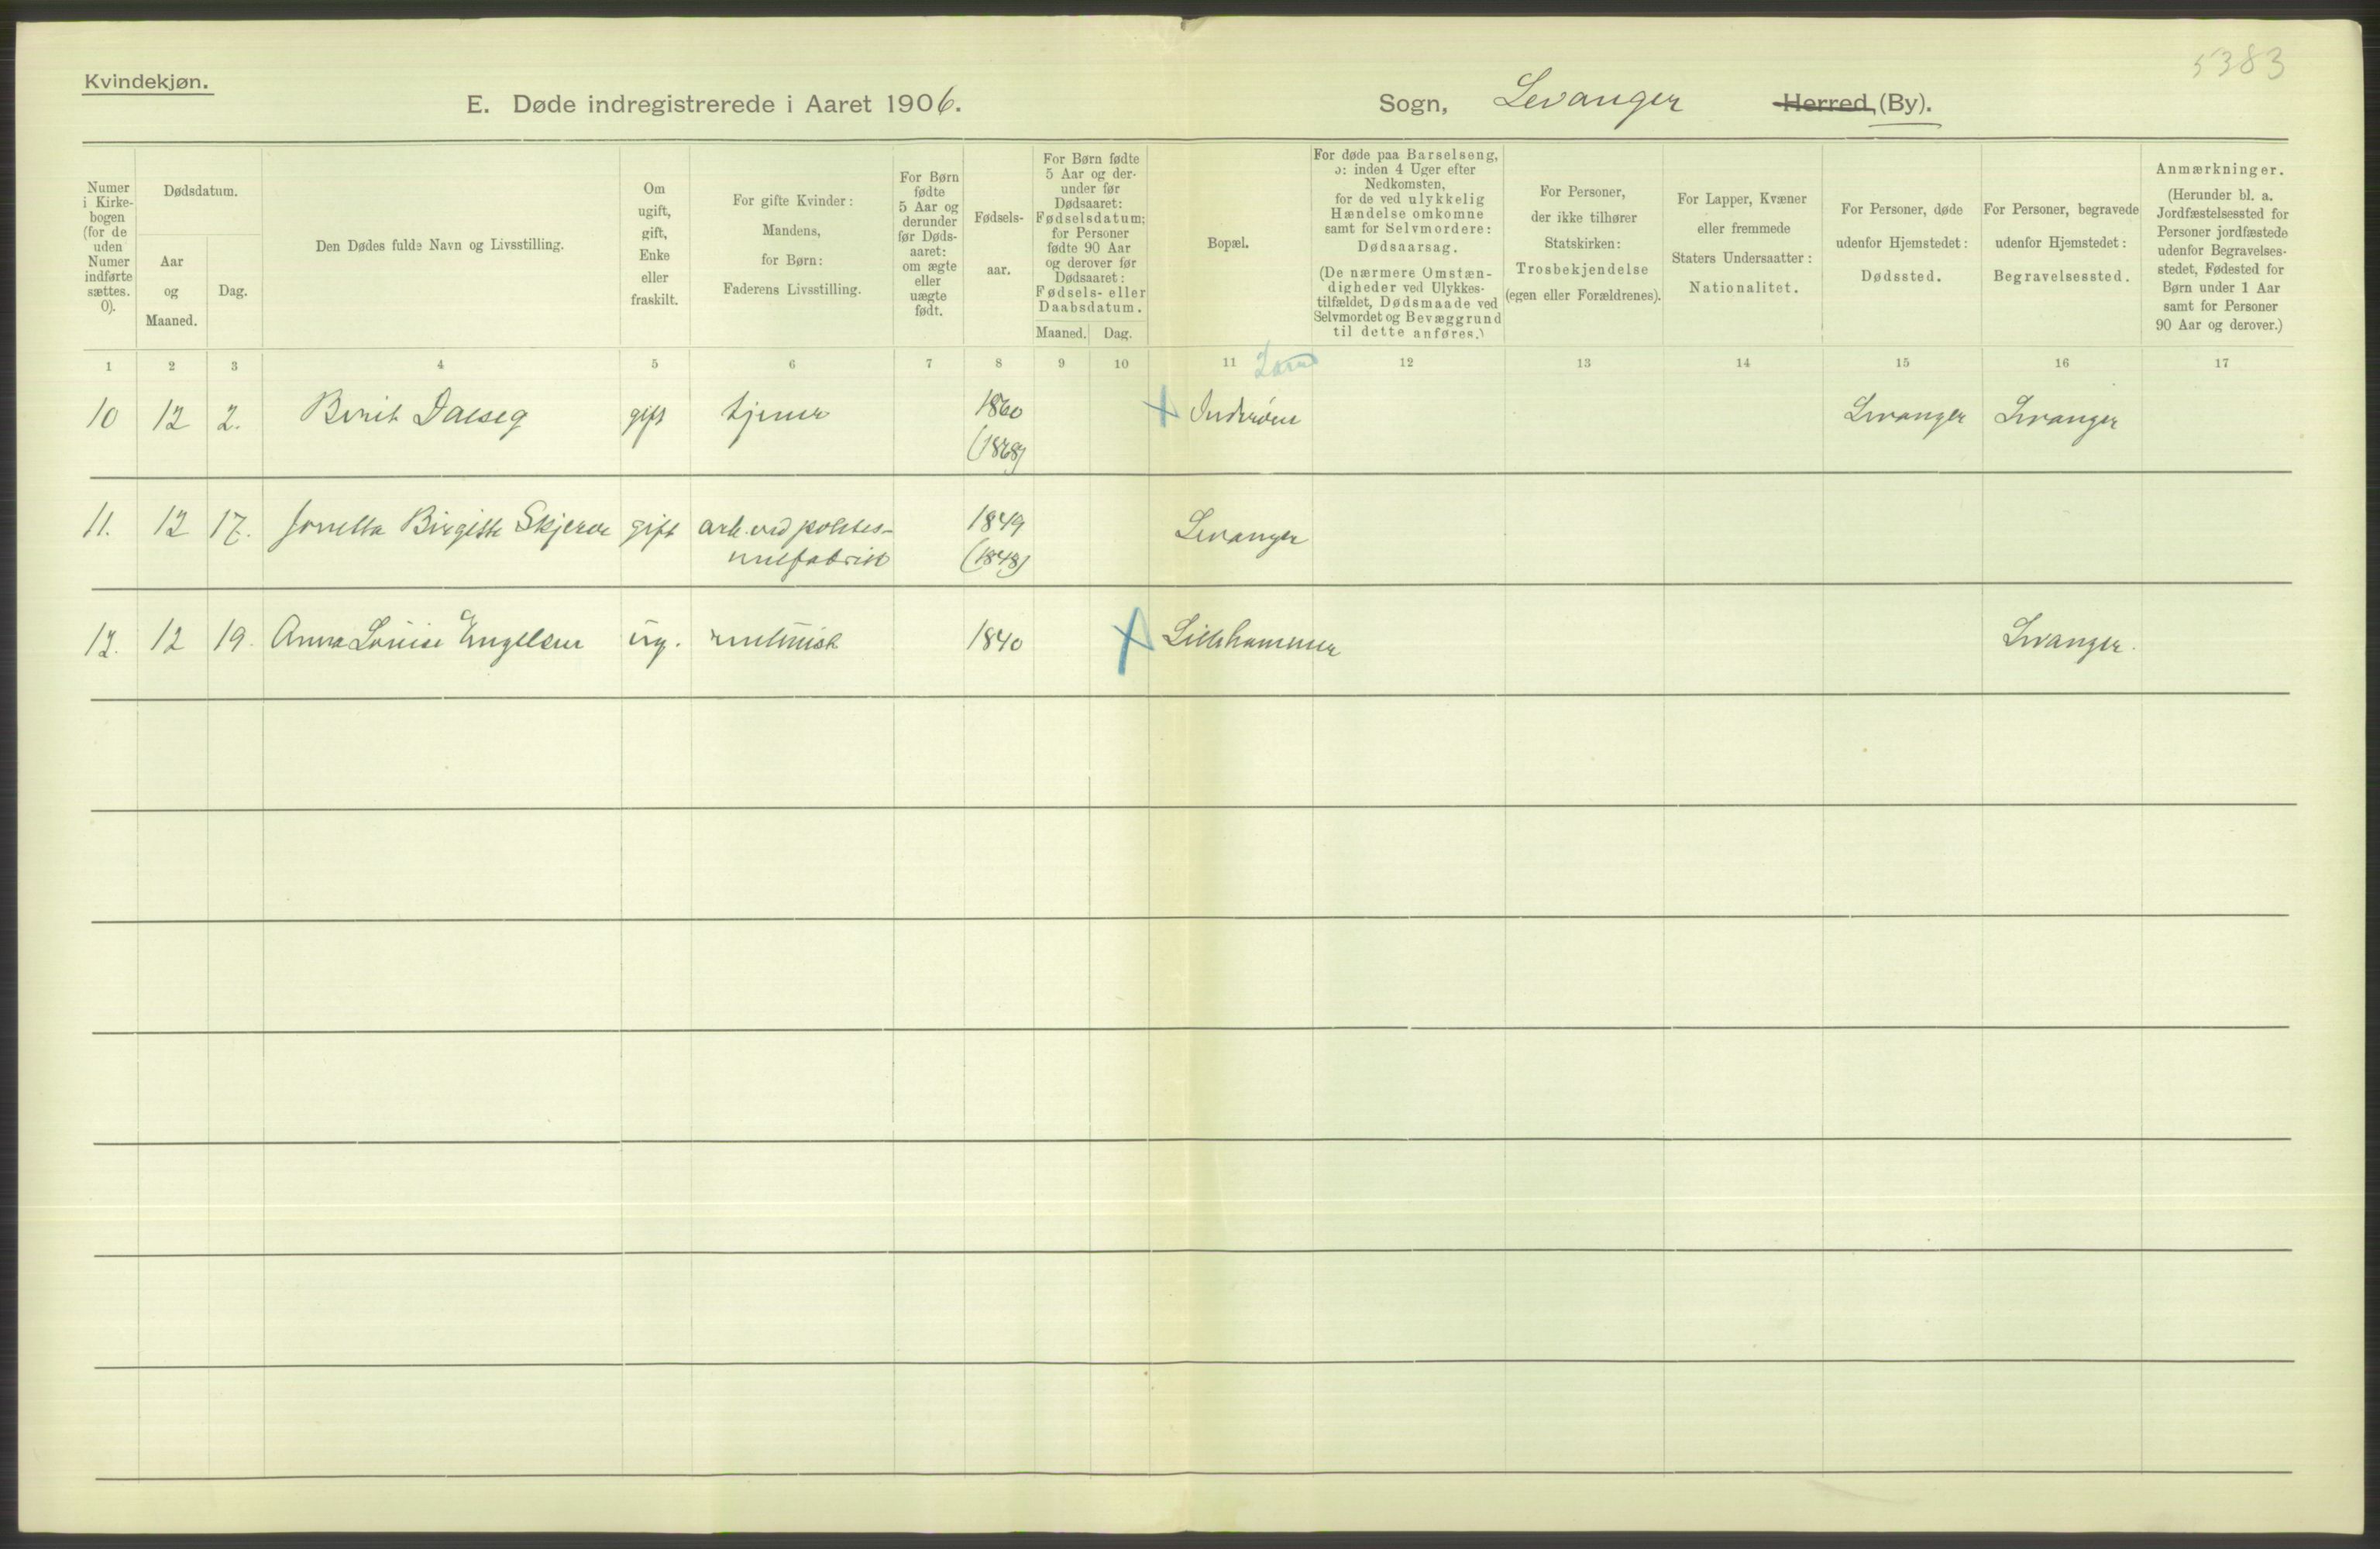 5383
Kvindekjøn.
E. Døde indregistrerede i Aaret 1906. Sogn, Levanger Herred, (By).
Numer i Kirke- bogen (for de uden Numer indførte sættes. 0).
Dødsdatum.
Aar og Maaned.
Dag.
Den Dødes fulde Navn og Livsstilling.
Om ugift, gift, Enke eller fraskilt.
For gifte Kvinder: Mandens, for Børn: Faderens Livsstilling.
For Børn fødte 5 Aar og derunder før Døds- aaret: om ægte eller uægte født.
Fødsels- aar.
For Børn fødte 5 Aar og der- under før Dødsaaret: Fødselsdatum; for Personer fødte 90 Aar og derover før Dødsaaret: Fødsels- eller Daabsdatum.
Maaned. Dag.
Bopæl.
For døde paa Barselseng, ɔ: inden 4 Uger efter Nedkomsten, for de ved ulykkelig Hændelse omkomne samt for Selvmordere: Dødsaarsag.
(De nærmere Omstæn- digheder ved Ulykkes- tilfældet, Dødsmaade ved Selvmordet og Bevæggrund til dette anføres.)
For Personer, der ikke tilhører Statskirken: Trosbekjendelse (egen eller Forældrenes).
For Lapper, Kvæner eller fremmede Staters Undersaatter: Nationalitet.
For Personer, døde udenfor Hjemstedet: Dødssted.
For Personer, begravede udenfor Hjemstedet: Begravelsessted.
Anmærkninger.
(Herunder bl. a. Jordfæstelsessted for Personer jordfæstede udenfor Begravelses- stedet, Fødested for Børn under 1 Aar samt for Personer 90 Aar og derover.)
1 2 3 4 5 6 7 8 9 10 11 12 13 14 15 16 17
10 12 2. Berit Dalseg gift tjener 1860 Inderøen Levanger Levanger
(1868)
11. 12 17. Jonetta Birgitte Skjerve gift arb. ved 1849 Levanger
(1848)
12. 12 19. Anna Louise Engelsen ug. 1840 Lillehammer Levanger.